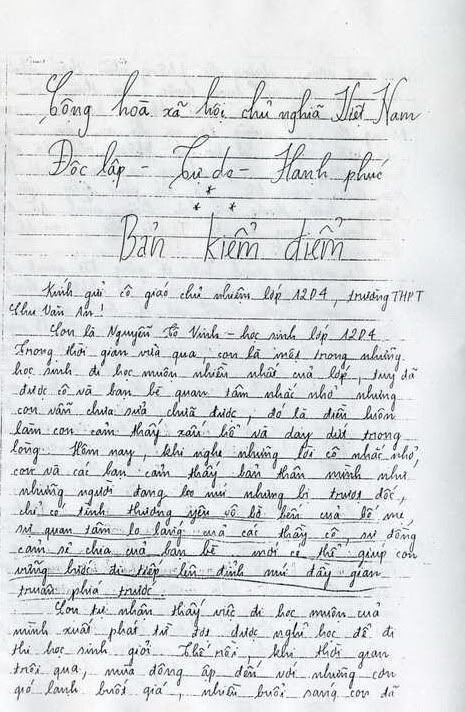 Cộng hoà xã hội chủ nghĩa Việt Nam
Độc lập - Tự do - Hạnh phúc
* * *
Bản kiểm điểm
Kính gửi cô giáo chủ nhiệm lớp 12D4, trường THPT
Chu Văn An!
Con là Nguyễn Tô Vinh - học sinh lớp 12D4
Trong thời gian vừa qua, con là một trong những
học sinh đi học muộn nhiều nhất của lớp, tuy đã
được cô và bạn bè quan tâm nhắc nhở nhưng
con vẫn chưa sửa chữa được, đó là điều luôn
làm con cảm thấy xấu hổ và day dứt trong
lòng. Hôm nay, khi nghe những lời cô nhắc nhở,
con và các bạn cảm thấy bản thân mình như
những người đang leo núi nhưng bị trượt dốc,
chỉ có tình thương yêu vô bờ bến của bố mẹ
sự quan tâm lo lắng của các thầy cô, sự đồng
cảm sẻ chia của bạn bè mới có thể giúp con
vững bước đi tiếp lên đỉnh núi đầy gian
truân phía trước.
Con tự nhận thấy việc đi học muộn của
mình xuất phát từ đợt được nghỉ học để đi
thi học sinh giỏi Thế rồi, khi thời gian
trôi qua, mùa đông ập đến với những cơn
gió lạnh buốt giá, nhiều buổi sáng con đã